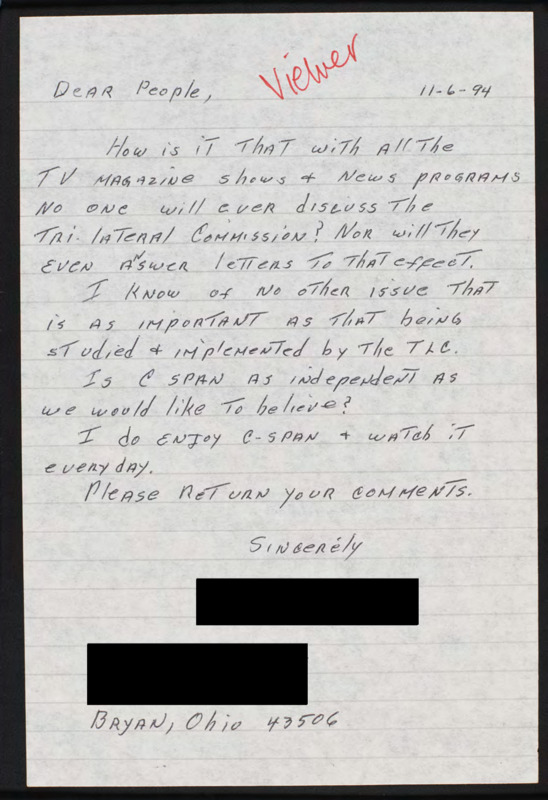 Viewer
Dear People, 11-6-94
How is it that with all the
TV magazine shows & News programs
no one will ever discuss the
Tri-lateral Commission? Nor will they
even answer letters to that effect.
I know of no other issue that
is as important as that being
studied & implemented by the TLC.
Is C SPAN as independent as
we would like to believe?
I do enjoy C-SPAN & watch it
everyday.
Please return your comments.
Sincerely
Bryan, Ohio 43506